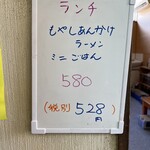 ランチ
もやしあんかけ
ラーメン
ミニごはん
580
(税別) 528円